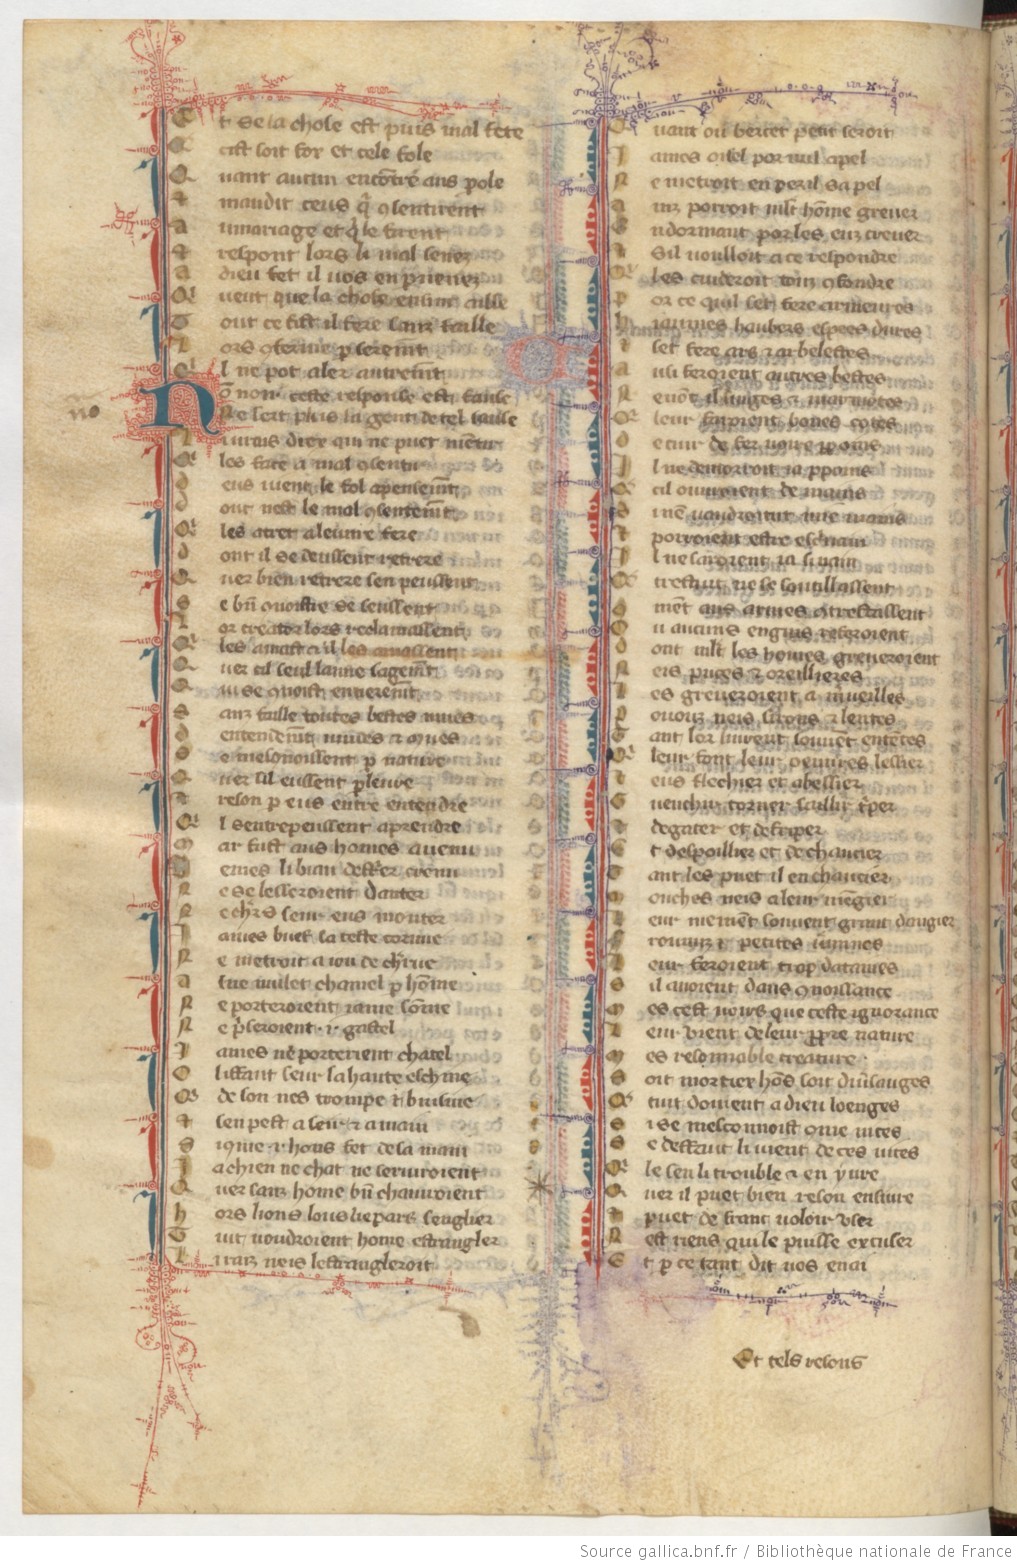 Et se la chose est puis mal fete
Cist soit fox et cele fole
Quant aucun encontre aus pole
Et maudit ceus qui
Le mariage et qui le firent
Et respont lors li mal senez
A dieu fet il vos en prenez
Qui veut que la chose ensint aille
Tout ce fist il fere sanz faille
Lors conferme par serement
Quil ne pot aler autrement
no
Non non ceste response est fausse
Ne sert plus la gent de tel
Li vrais diex qui ne puet mentir
Qui les face a mal consentir
Deus vient le fol apensement
Dont nest le mal consentement
Qui les atret a leuvre fere
Dont il se deussent retrere
Quer bien retrere sen peussent
Se bien conoistre se seussent
Lor creator lors reclamassent
Qui les amast sil les amassent
Quer cil seul lainne sagement
Qui se conoist entierement
Sanz faille toutes bestes mues
Dentendement vuides et nues
Se mesconoissent par nature
Quer sil eussent parleure
Et reson par eus entre entendre
Quil sentrepeussent aprendre
Mar fust aus homes avenu
James li biau destrier crenu
Ne se lesseroient danter
Ne chevaliers seur eus monter
James buef sa teste cornue
Ne metroit a iou de charrue
Asne mulet chamel por homme
Ne porteroient iame somme
Ne priseroient i gastel
James ne porterient chatel
Olifant seur sa haute eschine
Qui de son nes trompe et buisine
Et sen pest a seir et a main
Si come i hons fet de la main
Ja chien ne chat ne serviroient
Quer sanz home bien chauiroient
Hors lions lous liepars sengler
Tuit voudroient home estrangler
Li raz neis lestrangleroit
Quant ou bercet petit seroit
James oisel por nul apel
Ne metroit en peril sa pel
Ainz porroit mlt homme grever
En dormant por les euz crever
Et sil vouloit a ce respondre
Quil les cuideroit touz confondre
Por ce quil set fere armeures
Hiaumes haubers espees dures
Et set fere ars et arbelestes
Ausi feroient autres bestes
Ne vont il singes et marmotes
Qui leur feroient bones cotes
De cuir de fer voire porpoins
Il ne demorroit ia por poins
Car cil ouverroient de mains
Si nen vaudroient mie mains
Et porroient estre escrivain
Il ne seroient ia si vain
Que trestuit ne se soutillassent
Coment aus armes contrestassent
Et aucuns engins referoient
Dont mlt les homes greveroient
Neis puces et oreillieres
Les greveroient a merveilles
Poouz neis sirons et lentes
Tant lor livrent souvent ententes
Que leur font leur oeuvres lessier
Et eus flechier et abessier
Guenchir torner saillir triper
Et degater et defriper
Et despoillier et dechaucier
Tant les puet il enchaucier
Mouches neis a leur mengier
Leur mainent souvent grant dangier
Fremiz et petites
Leur feroient trop dataines
Sil avoient dans conoissance
Mes cest voirs que ceste ignorance
Leur vient de leur propre nature
Mes resonnable creature
Soit mortiex hons soit divins anges
Qui tuit doivent a dieu loenges
Si se mesconnoist come nices
Ce defaut li vient de ces vices
Qui le sen li trouble et enyvre
Quer il puet bien reson ensivre
Et puet de franc voloir user
Nest riens qui le puisse excuser
Et por ce tant dit vos en ai
Et tels resons
Source gallica.bnf.fr / Bibliothèque nationale de France